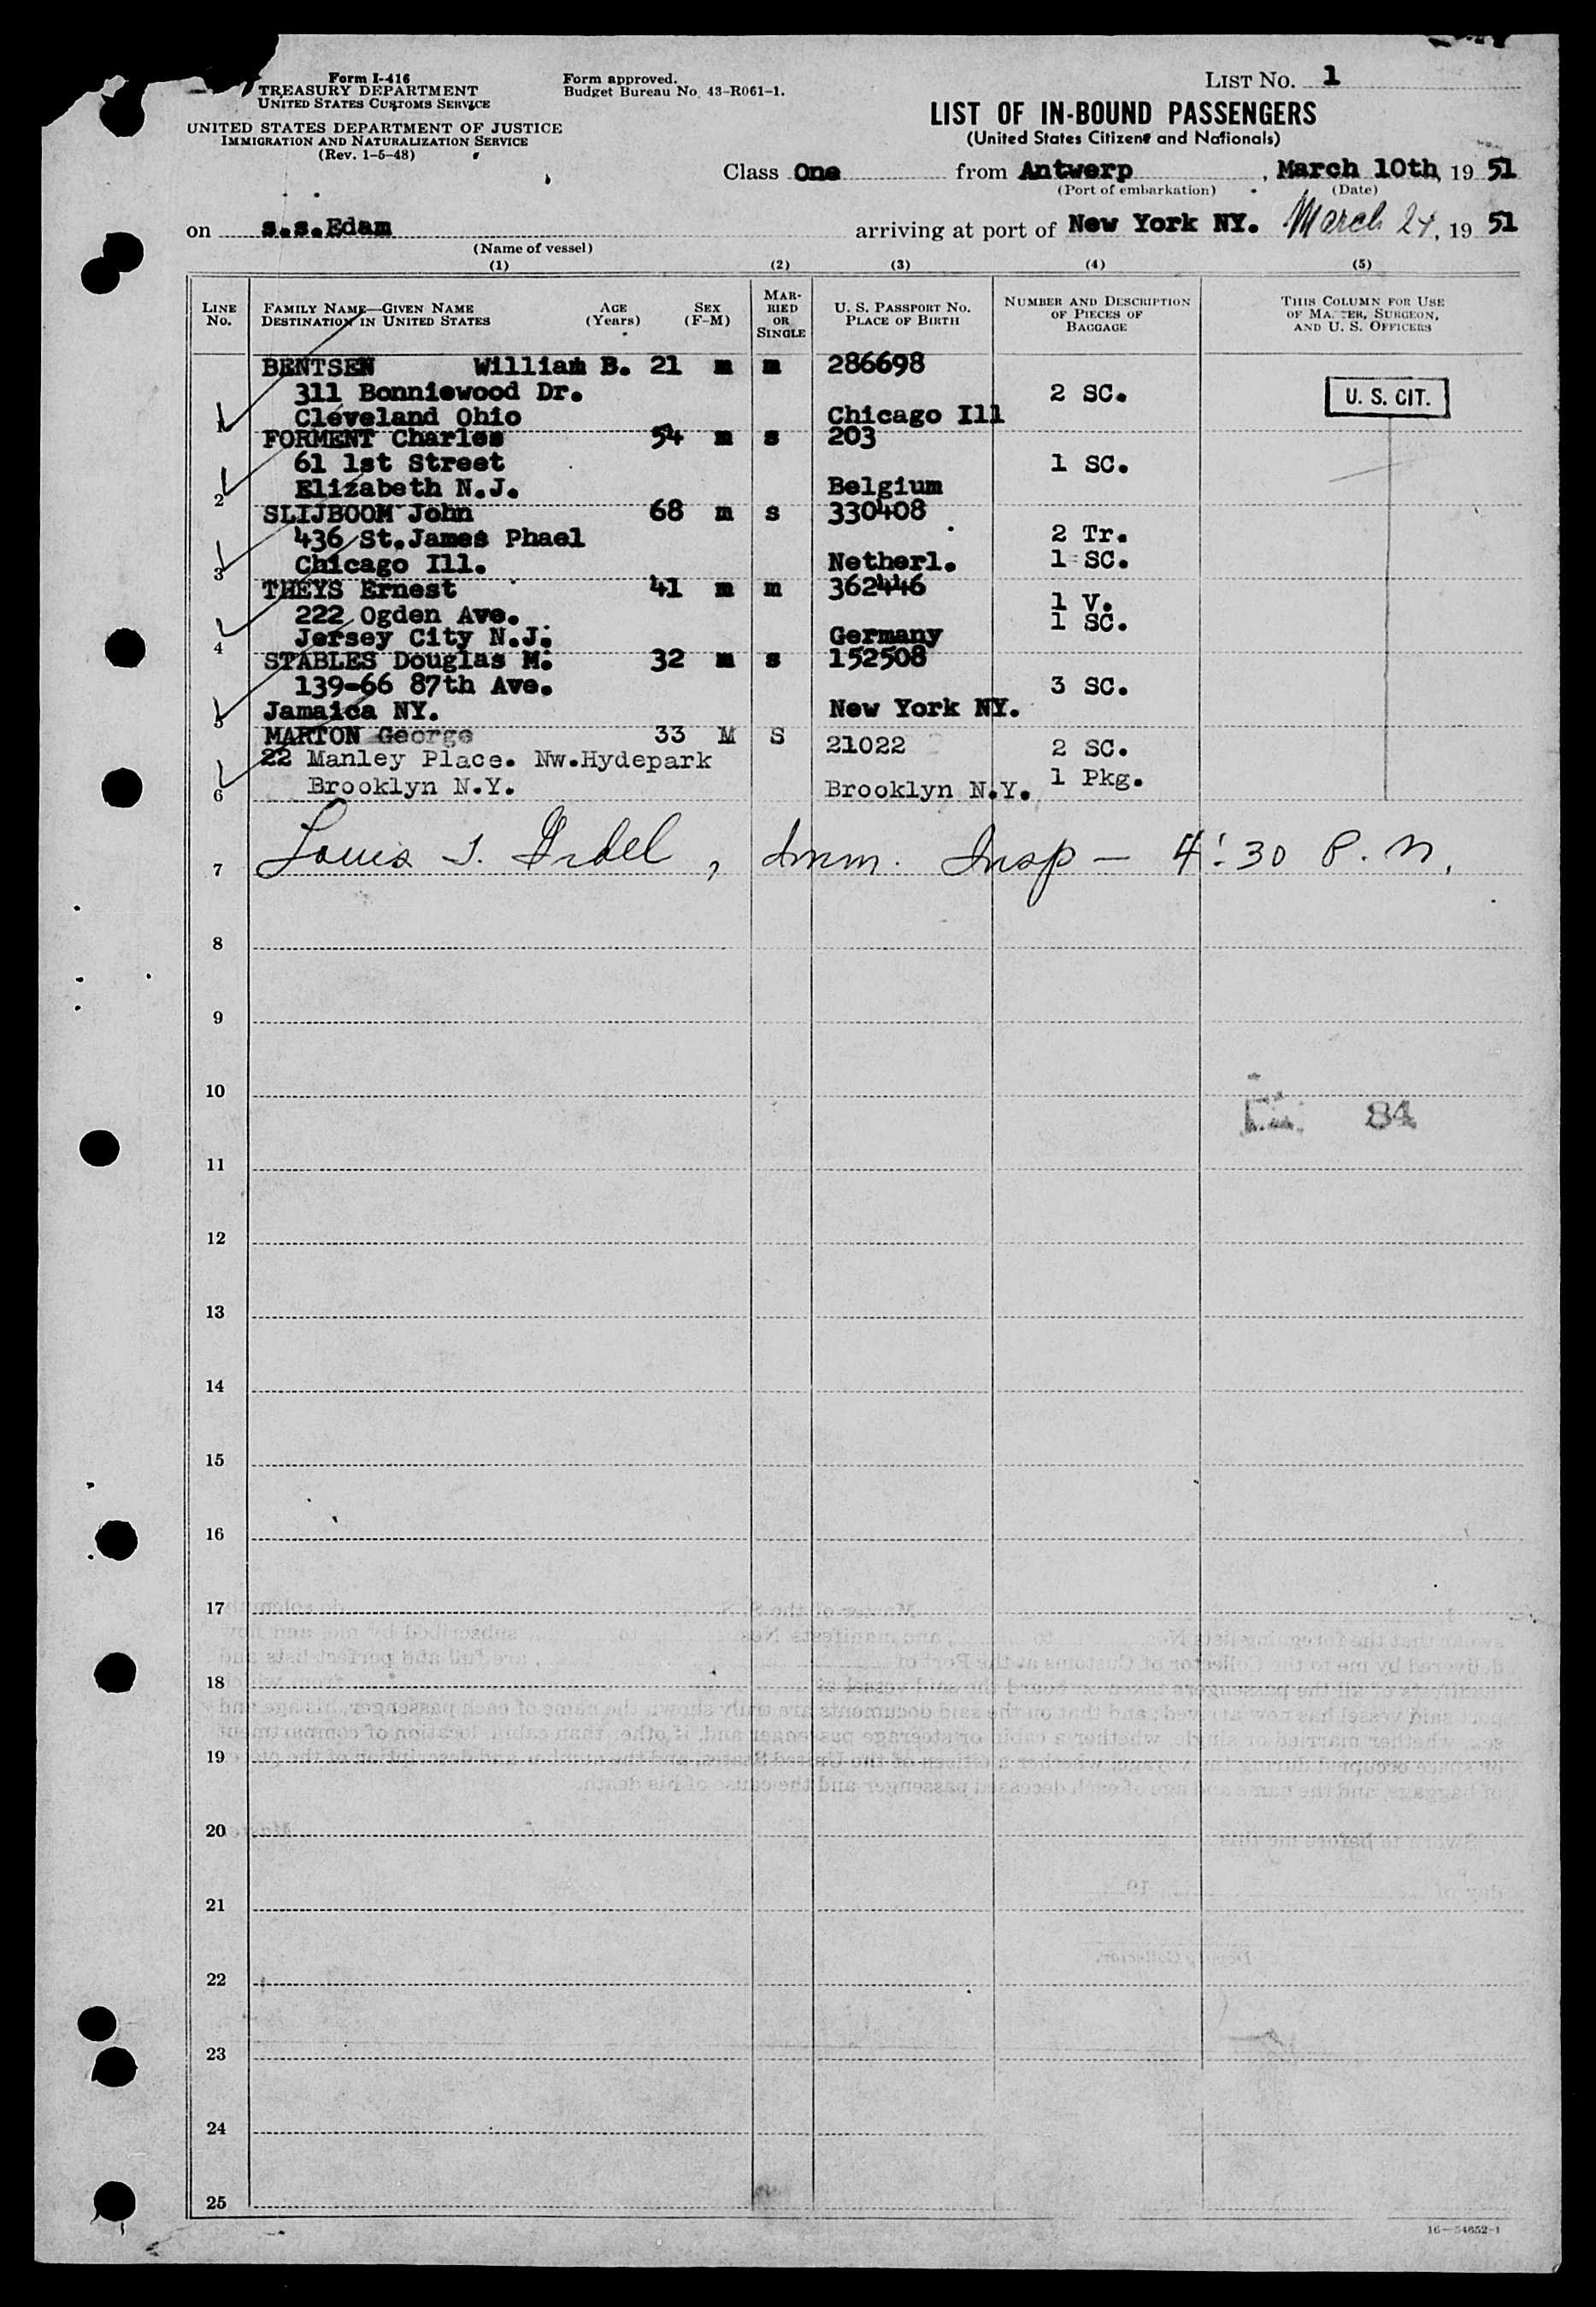 Form I-416
TREASURY DEPARTMENT
UNITED STATES CUSTOMS SERVICE
UNITED STATES DEPARTMENT OF JUSTICE
IMMIGRATION AND NATURALIZATION SERVICE
(Rev. 1-5-48)
Form approved.
Budget Bureau No. 43-R061-1.
LIST NO. 1
LIST OF IN-BOUND PASSENGERS
(United States Citizens and Nationals)
Class One from Antwerp, March 10th, 19 51
(Port of embarkation) (Date)
on s.s.Edam arriving at port of New York NY. March 24, 19 51
(Name of vessel)
(1) (2) (3) (4) (5)
LINE NO. FAMILY NAME—GIVEN NAME DESTINATION IN UNITED STATES AGE (Years) SEX (F-M) MARRIED OR SINGLE U. S. PASSPORT NO. PLACE OF BIRTH NUMBER AND DESCRIPTION OF PIECES OF BAGGAGE THIS COLUMN FOR USE OF MASTER, SURGEON, AND U. S. OFFICERS
BENTSEN William B. 21 m m 286698
311 Bonniewood Dr. 2 SC. U. S. CIT.
1 Cleveland Ohio Chicago Ill
FORMENT Charles 54 m s 203
61 1st Street 1 SC.
2 Elizabeth N.J. Belgium
SLIJBOOM John 68 m s 330408
436 St.James Phael 2 Tr.
3 Chicago Ill. Netherl. 1 SC.
THEYS Ernest 41 m m 362446
222 Ogden Ave. 1 V.
4 Jersey City N.J. Germany 1 SC.
STABLES Douglas M. 32 m s 152508
139-66 87th Ave. 3 SC.
5 Jamaica NY. New York NY.
MARTON George 33 M S 21022 2 SC.
22 Manley Place. Nw.Hydepark
6 Brooklyn N.Y. Brooklyn N.Y. 1 Pkg.
7 Louis J. , Imm. Insp — 4:30 P.M.
8
9
10
84
11
12
13
14
15
16
17
18
19
20
21
22
23
24
25
16—54652-1